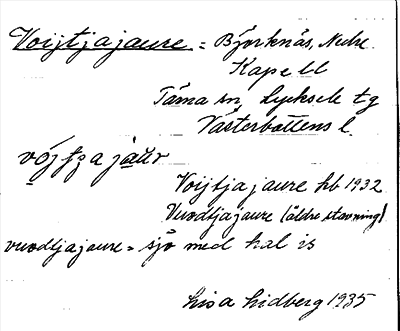 Voijtjajaure = Björknäs, Nedre
Kapell
Tärna sn, Lycksele tg
Västerbottens l.
vójtjajaur
Voijtjajaure kb 1932
Vuodtjajaure (äldre stavning)
vuodtjajaure = sjö med hal is
Lisa Lidberg 1935